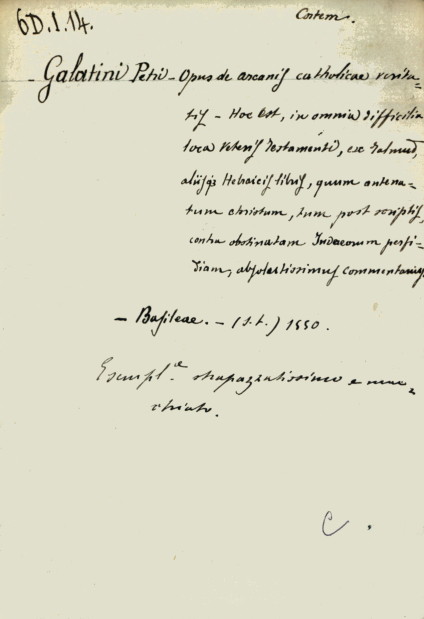 6D.I.14.
Contem.
- Galatini Petri - Opus de arcanis catholicae verita=
tis - Hoc est, in omnia difficilia
loca Veteris Testamenti, ex Talmud,
aliisqz Hebraicis libris, quum ante na=
tum Christum, tum post scriptis,
contra obstinatam Iudaeorum perfi=
diam, absolutissimus commentarius
- Basileae. - (s.t.) 1550.
Esempl.e strapazzatissimo e mac=
chiato.
C.